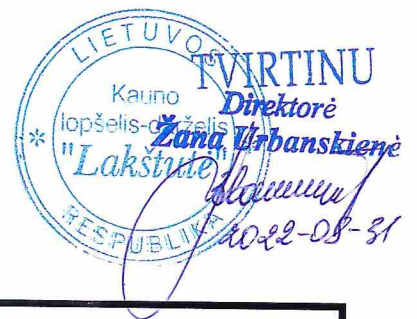 LIETUVOS
RESPUBLIKA
Kauno
lopšelis-darželis
"Lakštutė"
TVIRTINU
Direktorė
Žana Urbanskienė
2022-08-31